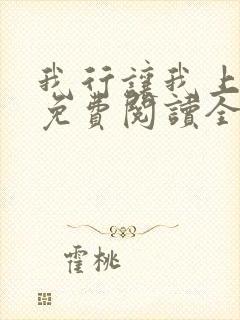 我行讓我上
免費閱讀全
霍桃